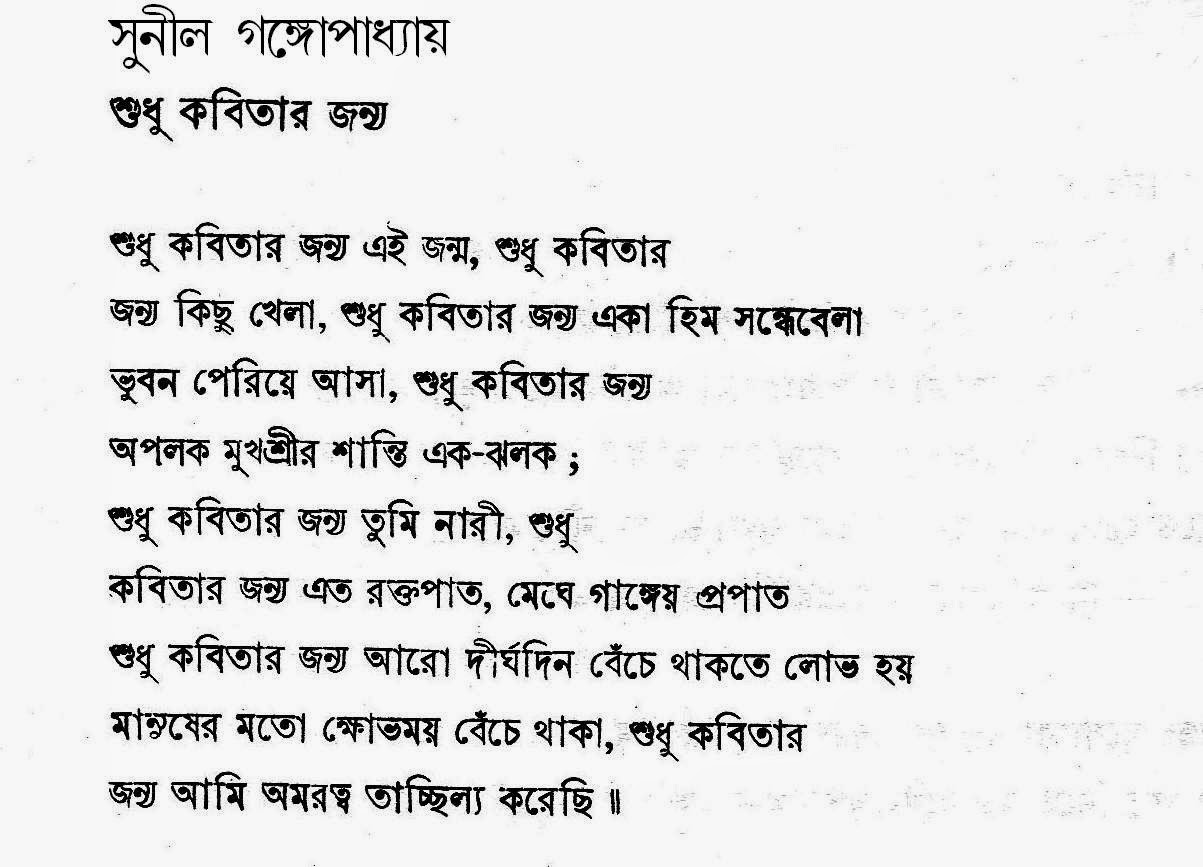 সুনীল গঙ্গোপাধ্যায়
শুধু কবিতার জন্য
শুধু কবিতার জন্য এই জন্ম, শুধু কবিতার
জন্য কিছু খেলা, শুধু কবিতার জন্য একা হিম সন্ধেবেলা
ভুবন পেরিয়ে আসা, শুধু কবিতার জন্য
অপলক মুখশ্রীর শান্তি এক-ঝলক ;
শুধু কবিতার জন্য তুমি নারী, শুধু
কবিতার জন্য এত রক্তপাত, মেঘে গাঙ্গেয় প্রপাত
শুধু কবিতার জন্য আরো দীর্ঘদিন বেঁচে থাকতে লোভ হয়
মানুষের মতো ক্ষোভময় বেঁচে থাকা, শুধু কবিতার
জন্য আমি অমরত্ব তাচ্ছিল্য করেছি ॥